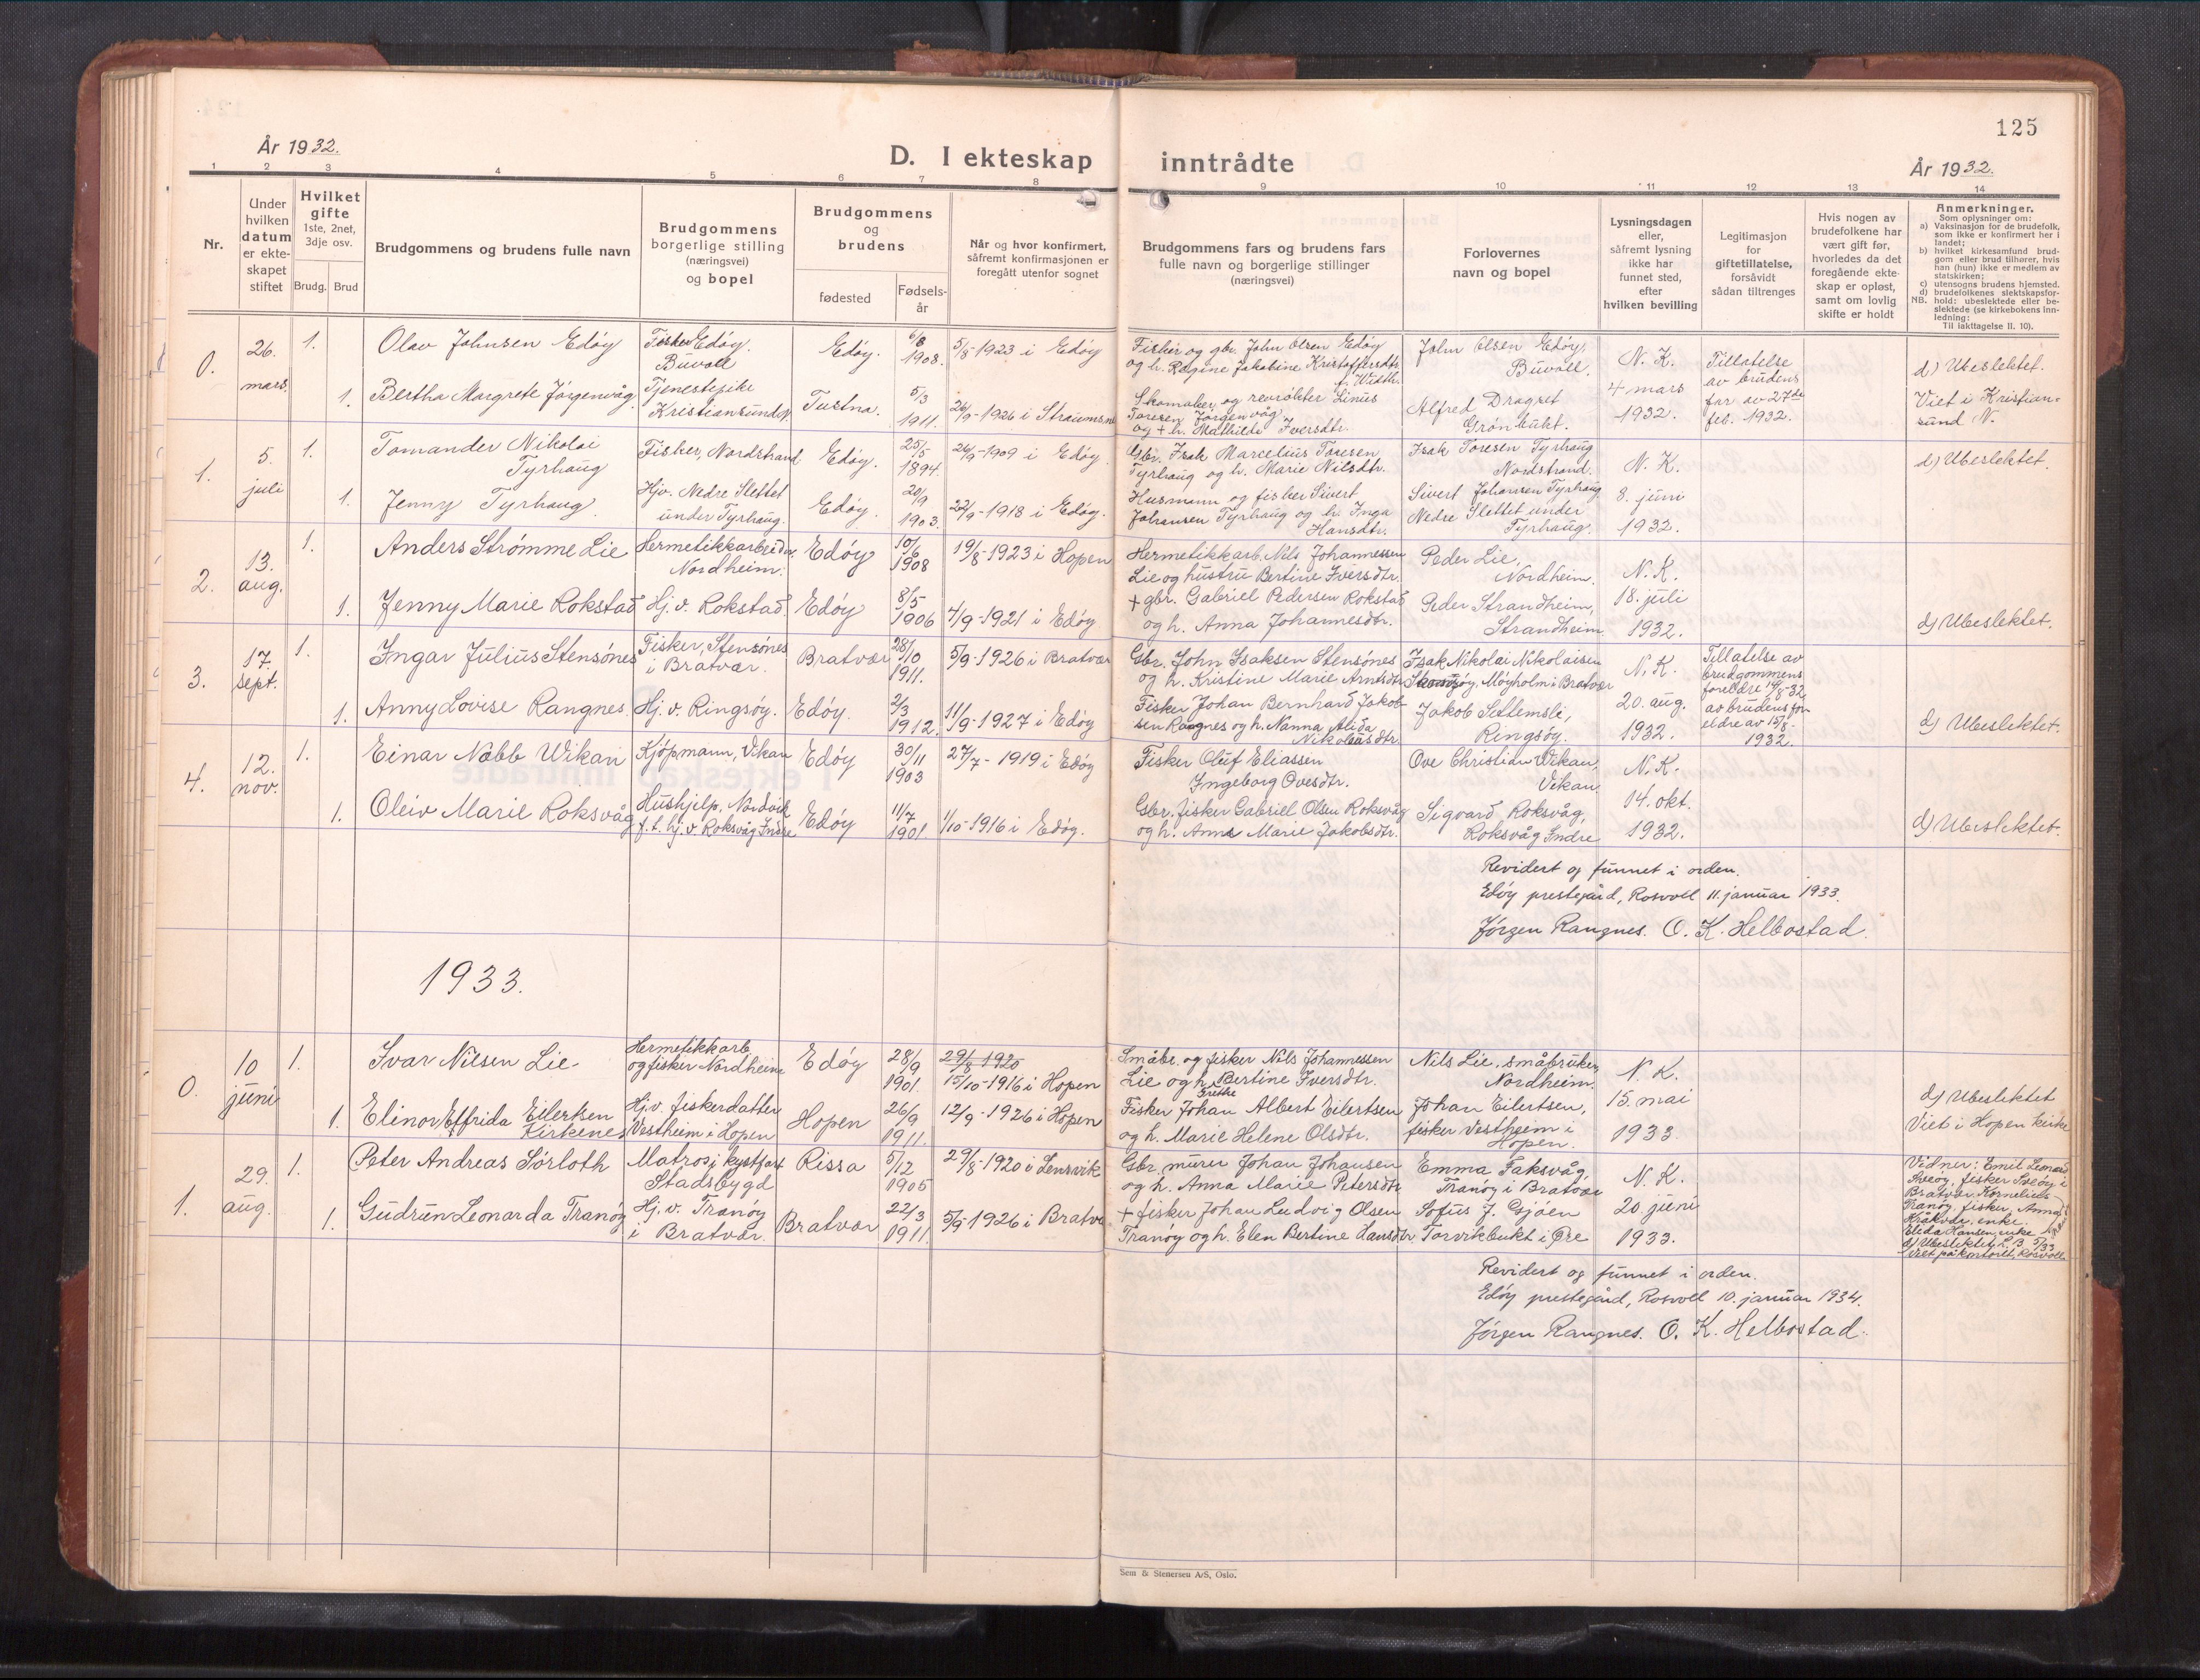 125
År 1932.
D. I ekteskap inntrådte
År 1932.
1 2 3 4 5 6 7 8 9 10 11 12 13 14
Nr.
Under hvilken datum er ekteskapet stiftet
Hvilket gifte
1ste, 2net, 3dje osv.
Brudg. Brud
Brudgommens og brudens fulle navn
Brudgommens borgerlige stilling (næringsvei) og bopel
Brudgommens og brudens
fødested
Fødselsår
Når og hvor konfirmert, såfremt konfirmasjonen er foregått utenfor sognet
Brudgommens fars og brudens fars fulle navn og borgerlige stillinger (næringsvei)
Forlovernes navn og bopel
Lysningsdagen eller, såfremt lysning ikke har funnet sted, efter hvilken bevilling
Legitimasjon for giftetillatelse, forsåvidt sådan tiltrenges
Hvis nogen av brudefolkene har vært gift før, hvorledes da det foregående ekteskap er opløst, samt om lovlig skifte er holdt
Anmerkninger.
Som oplysninger om:
a) Vaksinasjon for de brudefolk, som ikke er konfirmert her i landet;
b) hvilket kirkesamfund brudgom eller brud tilhører, hvis han (hun) ikke er medlem av statskirken;
c) utensogns brudens hjemsted.
d) brudefolkenes slektskapsforhold: ubeslektede eller beslektede (se kirkebokens innledning:
NB. Til iakttagelse II. 10).
0. 26. mars 1. Olav Johnsen Edöy Fisker Edöy. Buvoll Edöy. 6/8 1908. 5/8-1923 i Edöy Fisker og gbr. John Olsen Edöy og h. Regine Jakobine Kristoffersdtr. f. Width. John Olsen Edöy, Buvoll. N. K. 4 mars 1932. Tillatelse av brudens far av 27de feb. 1932. d) Ubeslektet. Viet i Kristiansund N.
1. Bertha Margrete Jörgenvåg Tjenestepike Kristiansund N. Tustna. 5/3 1911. 26/9-1926 i Skomaker og Linus Toresen Jörgenvåg og + h. Mathilde Iversdtr. Alfred Dragset Grönbukt.
1. 5. juli 1. Tomander Nikolai Tyrhaug Fisker, Nordstrand Edöy. 25/5 1894. 26/9-1909 i Edöy. Gbr. Isak Marcelius Toresen Tyrhaug og h. Marie Nilsdtr. Isak Toresen Tyrhaug Nordstrand. N. K. 8. juni 1932. d) Ubeslektet.
1. Jenny Tyrhaug Hjv. Nedre Slettet under Tyrhaug. Edöy. 20/9 1903. 22/9-1918 i Edöy. Husmann og fisker Sivert Johansen Tyrhaug og h. Inga Hansdtr. Sivert Johansen Tyrhaug Nedre Slettet under Tyrhaug.
2. 13. aug. 1. Anders Strömme Lie Hermetikkarbeider Nordheim. Edöy 10/6 1908 19/8-1923 i Hopen Hermetikkarb. Nils Johannessen Lie og hustru Bertine Iversdtr. Peder Lie, Nordheim. N. K. 18. juli 1932.
1. Jenny Marie Rokstad Hj. v. Rokstad. Edöy 8/5 1906 4/9-1921 i Edöy + gbr. Gabriel Pedersen Rokstad og h. Anna Johannesdtr. Peder Strandheim, Strandheim. d) Ubeslektet.
3. 17. sept. 1. Ingar Julius Stensönes Fisker, Stensönes i Bratvær. Bratvær 28/10 1911. 5/9-1926 i Bratvær Gbr. John Isaksen Stensönes og h. Kristine Marie Arntsdtr. Isak Nikolai Nikolaisen Möyholm i Bratvær N. K. 20. aug. 1932. Tillatelse av brudgommens foreldre 14/8-32 av brudens foreldre av 15/8-1932.
1. Anny Lovise Rangnes. Hj. v. Ringsöy. Edöy. 2/3 1912. 11/9-1927 i Edöy Fisker Johan Bernhard Jakobsen Rangnes og h. Nanna Alida Nikolaisdtr. Jakob Settemsli, Ringsöy. d) Ubeslektet.
4. 12. nov. 1. Einar Nabb Wikan Kjöpmann, Vikan Edöy 30/11 1903 27/7-1919 i Edöy Fisker Oluf Eliassen Ingeborg Ovesdtr. Ove Christian Vikan, Vikan. N. K. 14. okt. 1932.
1. Oleiv Marie Roksvåg Hushjelp, Nordvik f. t. hj. v. Roksvåg Indre Edöy 11/7 1901. 1/10-1916 i Edöy. Gbr. fisker Gabriel Olsen Roksvåg og h. Anna Marie Jakobsdtr. Sigvard Roksvåg, Roksvåg Indre d) Ubeslektet.
Revidert og funnet i orden.
Edöy prestegård, Rosvoll 11. januar 1933.
Jörgen Rangnes. O. K. Helbostad.
1933.
0. 10 juni 1. Ivar Nilsen Lie Hermetikkarb. og fisker Nordheim Edöy 28/9 1901. 29/8 1920 15/10-1916 i Hopen Småbr. og fisker Nils Johannessen Lie og h. Bertine Iversdtr. Nils Lie, småbruker, Nordheim. N. K. 15. mai 1933.
1. Elinor Elfrida Eilertsen Kirkenes Hj. v. fiskerdatter Vestheim i Hopen Hopen 26/9 1911. 12/9-1926 i Hopen Fisker Johan Albert Eilertsen og h. Marie Helene Olsdtr. Grethe Johan Eilertsen, fisker Vestheim i Hopen. d) Ubeslektet Viet i Hopen kirke
1. 29. aug. 1. Peter Andreas Sörloth Matros i kystfart Stadsbygd Rissa 5/12 1905 29/8-1920 i Lensvik Gbr. murer Johan Johansen og h. Anna Marie Petersdtr. Emma Faksvåg, Tranöy i Bratvær N. K. 20. juni 1933. Vidner: Emil Leonard Sveöy, fisker Sveöy i Bratvær, Kornelius Tranöy, fisker, Anna Kråkvåg, enke. Elida Hansen, enke d) Ubeslektet. Viet på kontoret, Rosvoll.
1. Gudrun Leonarda Tranöy Hj. v. Tranöy i Bratvær. Bratvær 22/3 1911. 5/9-1926 i Bratvær + fisker Johan Ludvig Olsen Tranöy og h. Elen Bertine Hansdtr. Sofus J. Gjöen Torvikbukt i Öre
Revidert og funnet i orden.
Edöy prestegård, Rosvoll 10. januar 1934.
Jörgen Rangnes. O. K. Helbostad.
Sem & Stenersen A/S, Oslo.